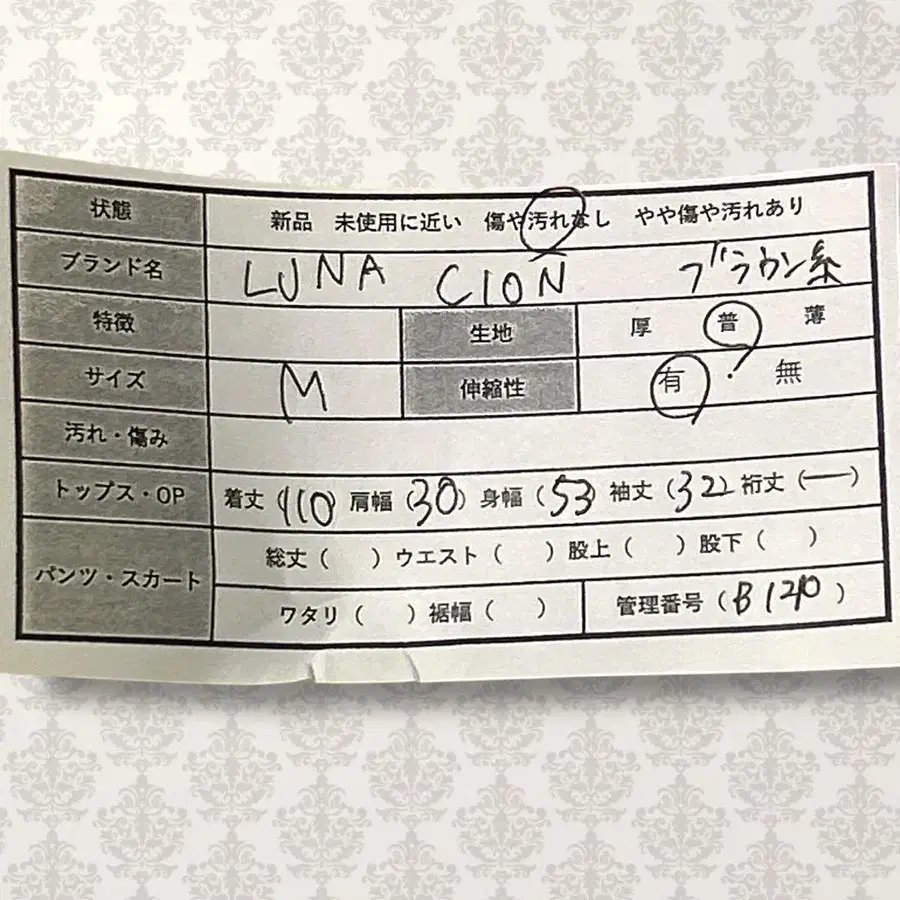 状態 新品 未使用に近い 傷や汚れなし やや傷や汚れあり
ブランド名 LUNA CION ブラウン系
特徴 生地 厚 普 薄
サイズ M 伸縮性 有 ・ 無
汚れ・傷み
トップス・OP 着丈(110) 肩幅(30) 身幅(53) 袖丈(32) 裄丈(ー)
パンツ・スカート 総丈( ) ウエスト( ) 股上( ) 股下( )
ワタリ( ) 裾幅( ) 管理番号(B1210)